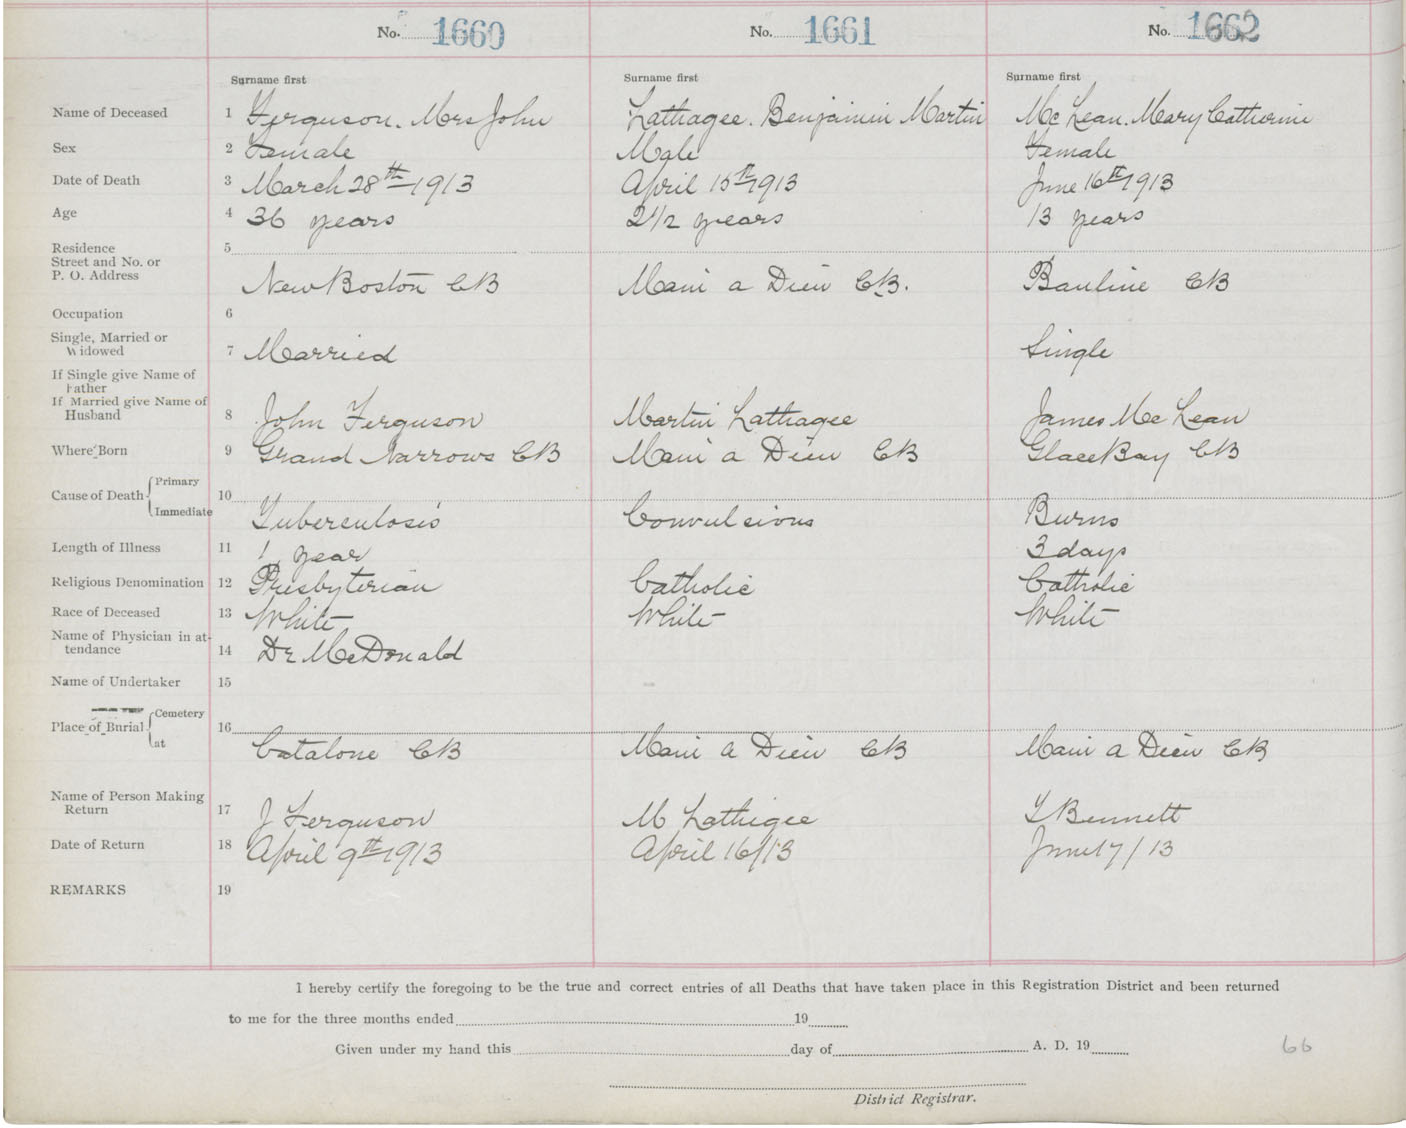 No. 1660 No. 1661 No. 1662
Surname first Surname first Surname first
Name of Deceased 1 Ferguson. Mrs John Lathagee. Benjamin Martin Mc Lean. Mary Catherine
Sex 2 Female Male Female
Date of Death 3 March 28th 1913 April 15th 1913 June 16th 1913
Age 4 36 years 2 1/2 years 13 years
Residence 5
Street and No. or
P. O. Address New Boston CB Main a Dieu CB. Bauline CB
Occupation 6
Single, Married or
Widowed 7 Married Single
If Single give Name of
Father
If Married give Name of
Husband 8 John Ferguson Martin Lathagee James Mc Lean
Where Born 9 Grand Narrows CB Main a Dieu CB Glace Bay CB
Cause of Death Primary 10
Immediate Tuberculosis Convulsions Burns
Length of Illness 11 1 year 3 days
Religious Denomination 12 Presbyterian Catholic Catholic
Race of Deceased 13 White White White
Name of Physician in at-
tendance 14 Dr McDonald
Name of Undertaker 15
Place of Burial Cemetery 16
at Catalone CB Main a Dieu CB Main a Dieu CB
Name of Person Making
Return 17 J Ferguson M Lathigee T Bennett
Date of Return 18 April 9th 1913 April 16/13 June 17/13
REMARKS 19
I hereby certify the foregoing to be the true and correct entries of all Deaths that have taken place in this Registration District and been returned
to me for the three months ended 19
Given under my hand this day of A. D. 19
66
District Registrar.